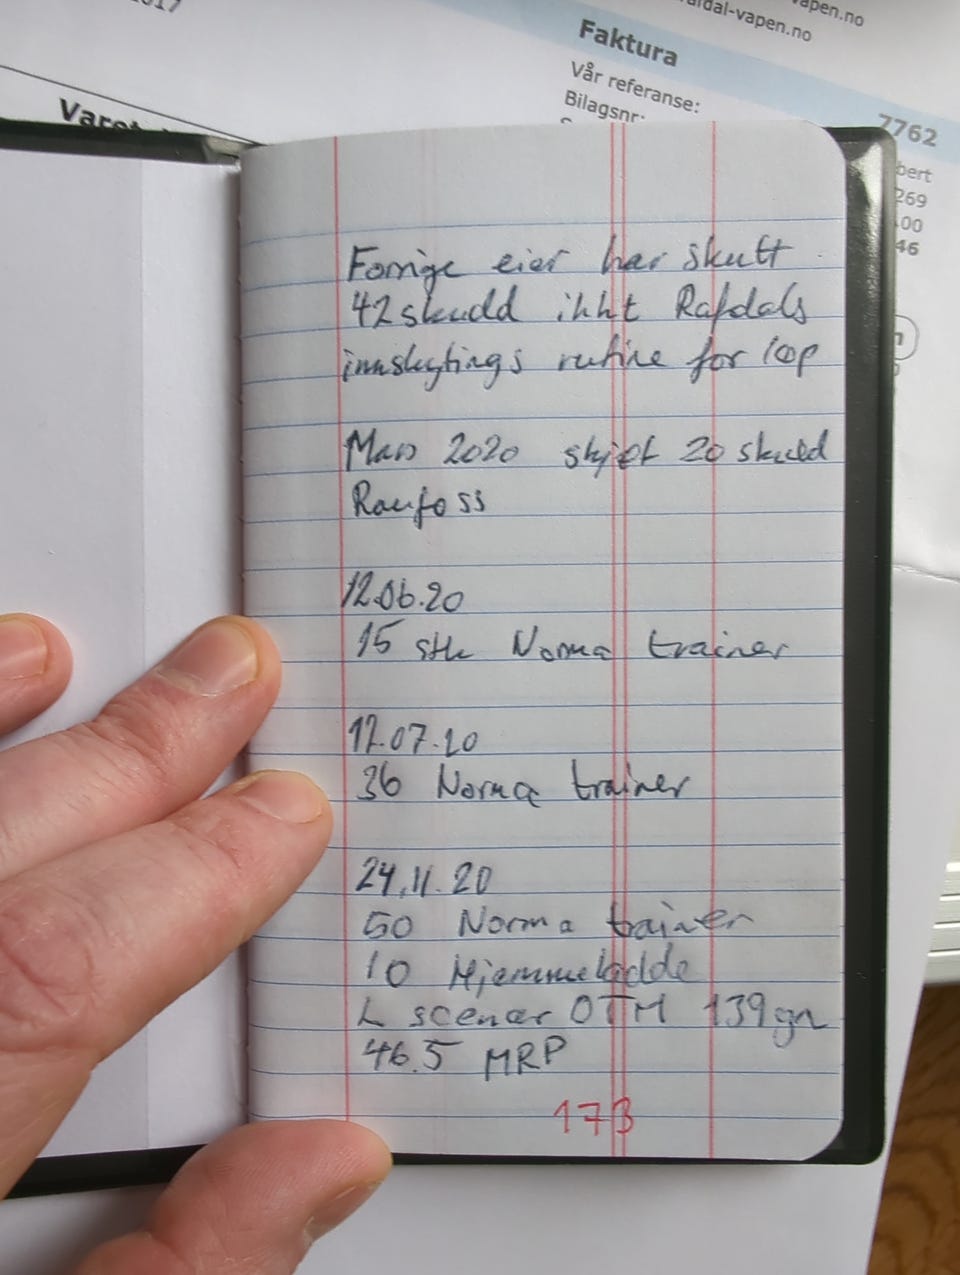 2017
vapen.no
dal-vapen.no
Faktura
Vår referanse:
Bilagsnr:
7762
bert
269
.00
46
Forrige eier har skutt
42 skudd ihht Rafdals
innskytings rutine for løp
Mars 2020 skjøt 20 skudd
Raufoss
12.06.20
15 stk Norma trainer
12.07.20
36 Norma trainer
24.11.20
50 Norma trainer
10 Hjemmeladde
L scenar OTM 139gn
46.5 MRP
173